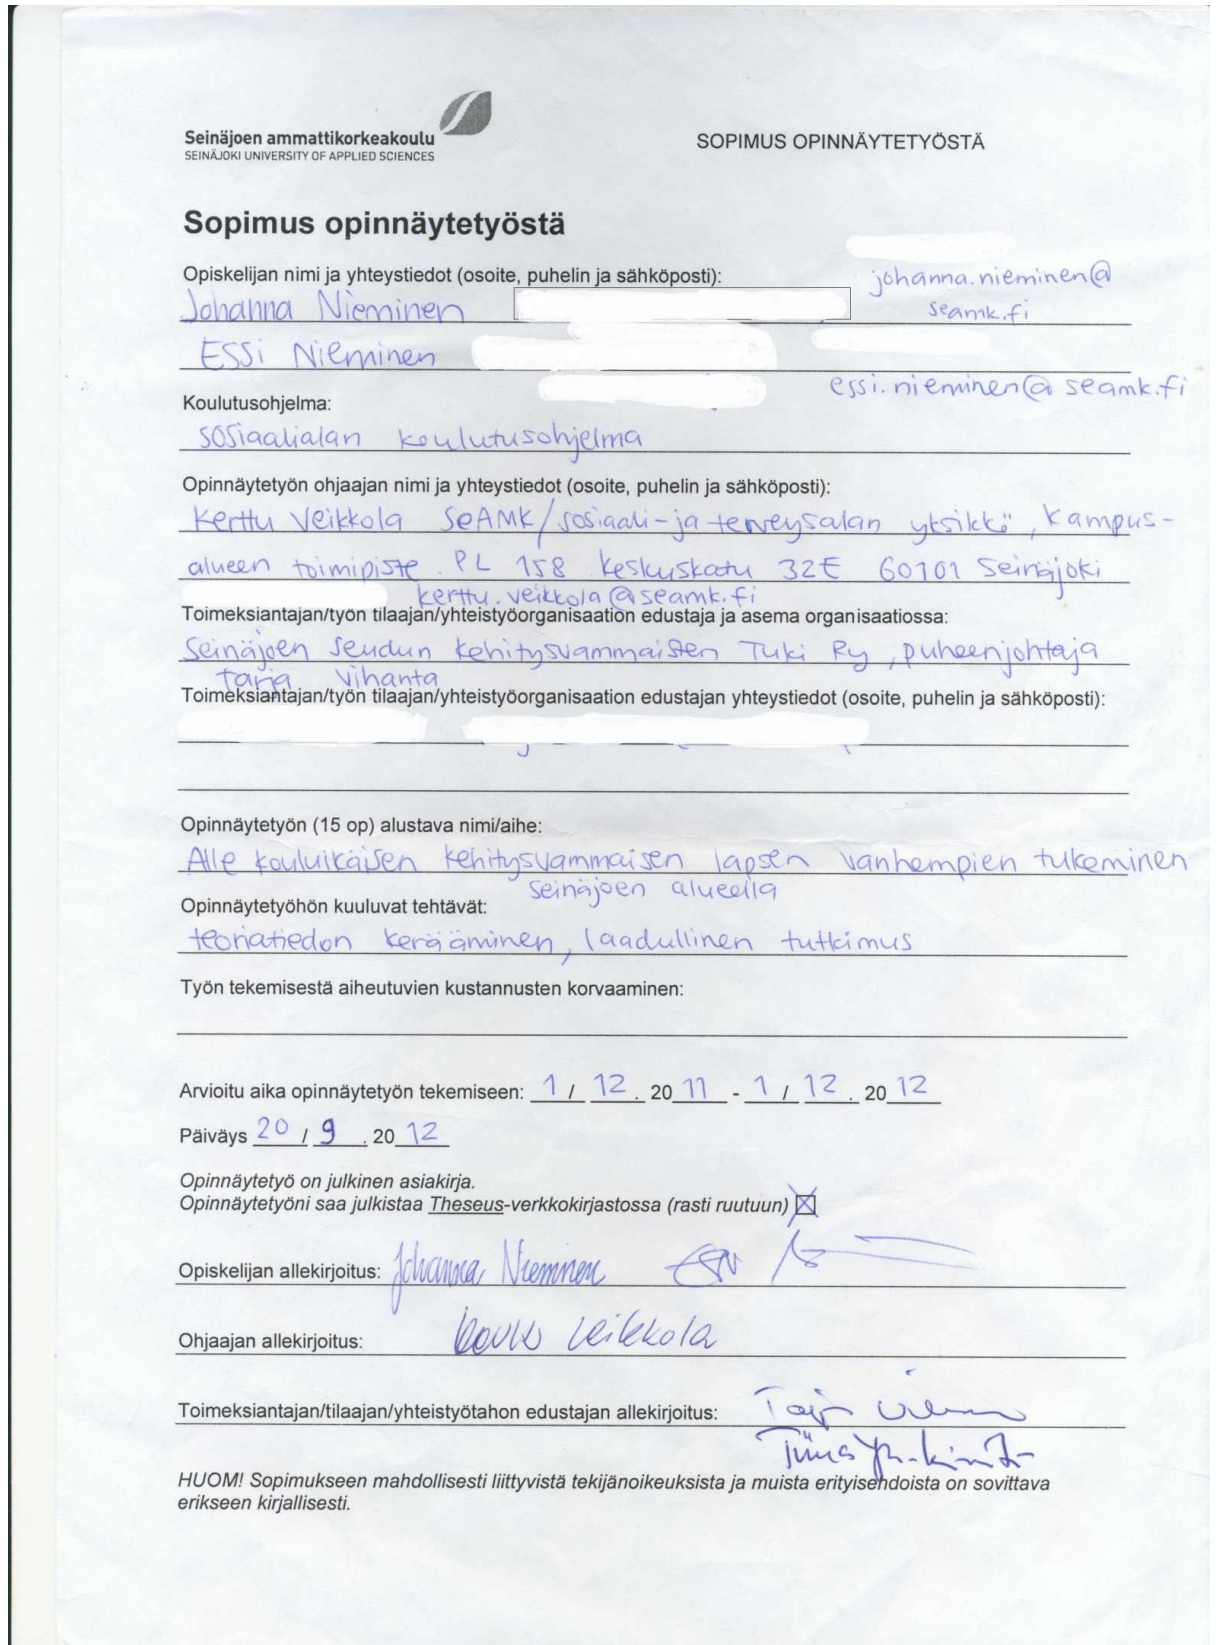 Seinäjoen ammattikorkeakoulu
SEINÄJOKI UNIVERSITY OF APPLIED SCIENCES
SOPIMUS OPINNÄYTETYÖSTÄ
Sopimus opinnäytetyöstä
Opiskelijan nimi ja yhteystiedot (osoite, puhelin ja sähköposti):
johanna.nieminen@
seamk.fi
Johanna Nieminen
Essi Nieminen
essi.nieminen@seamk.fi
Koulutusohjelma:
sosiaalialan koulutusohjelma
Opinnäytetyön ohjaajan nimi ja yhteystiedot (osoite, puhelin ja sähköposti):
Kerttu Veikkola SeAMK/sosiaali-ja terveysalan yksikkö, Kampus-
alueen toimipiste. PL 158 Keskuskatu 32E 60101 Seinäjoki
kerttu.veikkola@seamk.fi
Toimeksiantajan/työn tilaajan/yhteistyöorganisaation edustaja ja asema organisaatiossa:
Seinäjoen Seudun Kehitysvammaisten Tuki Ry, puheenjohtaja
Tarja Vihanta
Toimeksiantajan/työn tilaajan/yhteistyöorganisaation edustajan yhteystiedot (osoite, puhelin ja sähköposti):
Opinnäytetyön (15 op) alustava nimi/aihe:
Alle kouluikäisen kehitysvammaisen lapsen vanhempien tukeminen
Seinäjoen alueella
Opinnäytetyöhön kuuluvat tehtävät:
teoriatiedon kerääminen, laadullinen tutkimus
Työn tekemisestä aiheutuvien kustannusten korvaaminen:
Arvioitu aika opinnäytetyön tekemiseen: 1 / 12 . 20 11 - 1 / 12 . 20 12
Päiväys 20 / 9 . 20 12
Opinnäytetyö on julkinen asiakirja.
Opinnäytetyöni saa julkistaa Theseus-verkkokirjastossa (rasti ruutuun) ☒
Opiskelijan allekirjoitus: Johanna Nieminen
Ohjaajan allekirjoitus: Veikkola
Toimeksiantajan/tilaajan/yhteistyötahon edustajan allekirjoitus:
HUOM! Sopimukseen mahdollisesti liittyvistä tekijänoikeuksista ja muista erityisehdoista on sovittava
erikseen kirjallisesti.